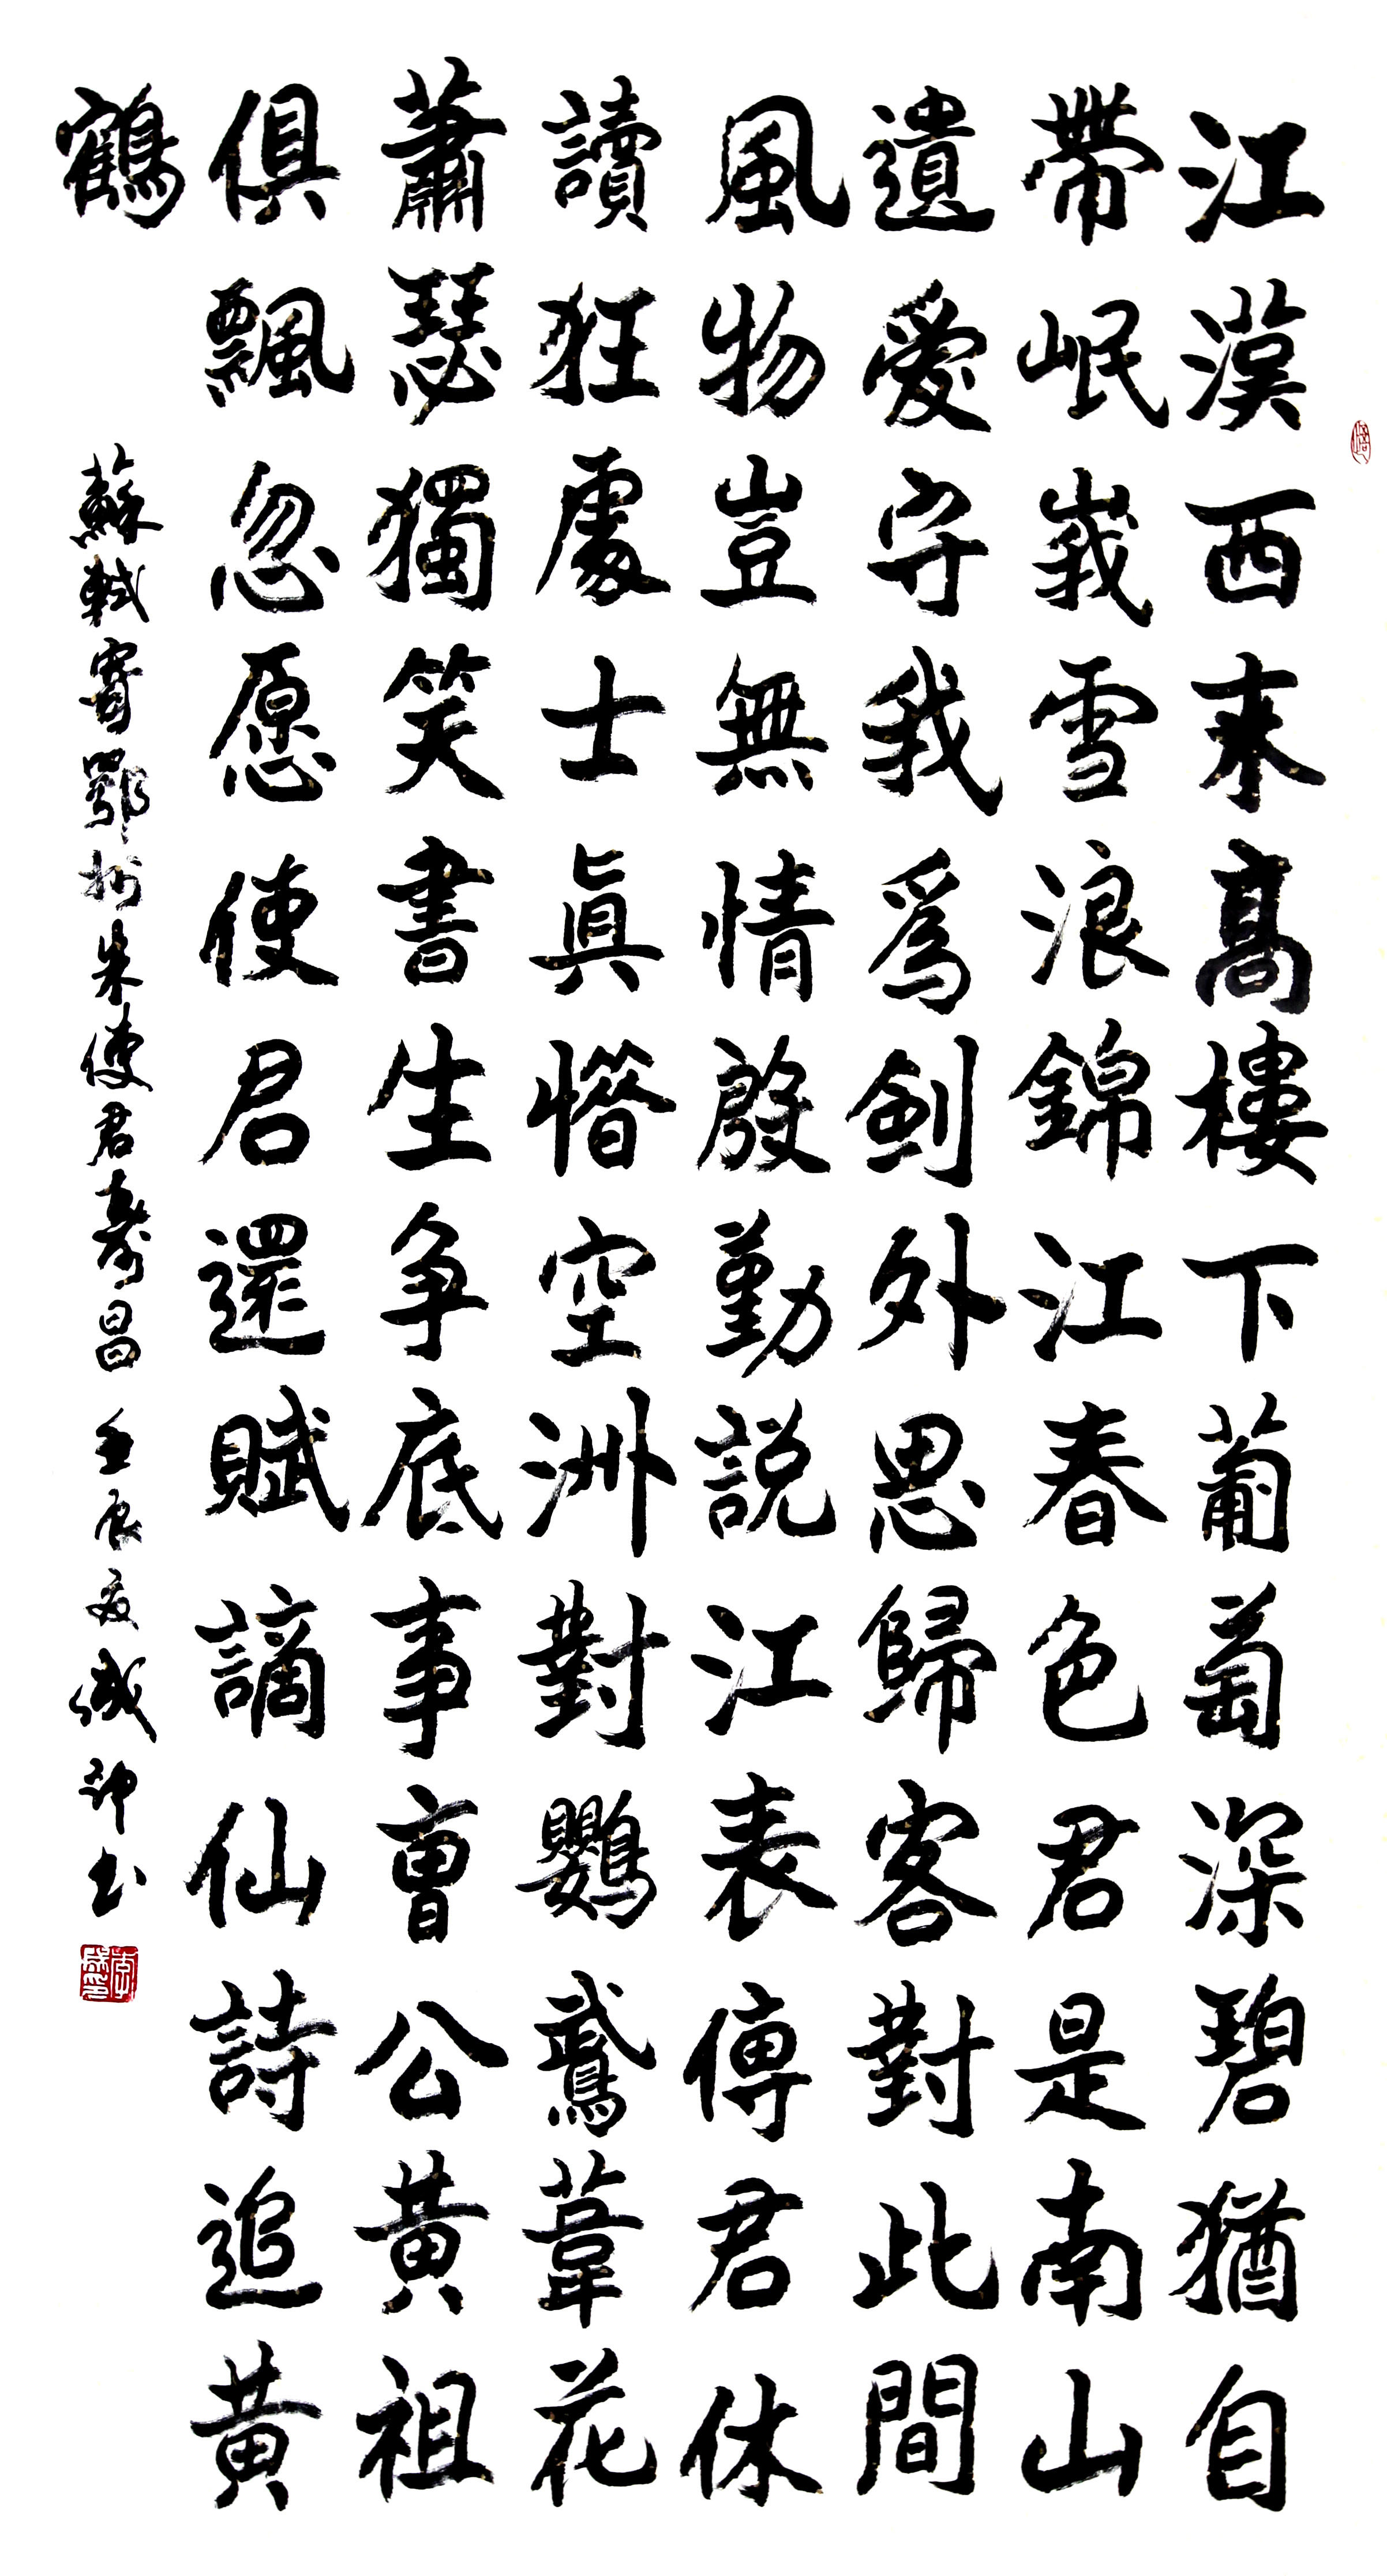 江漢西来高樓下葡萄深碧猶自
帶岷峩雪浪錦江春色君是南山
遺愛守我爲劍外思歸客對此間
風物豈無情殷勤説江表傳君休
讀狂處士真惜空洲對鸚鵡葦花
蕭瑟獨笑書生争底事曹公黄祖
俱飄忽愿使君還賦謫仙詩追黄
鶴
蘇軾寄鄂州朱使君壽昌 壬辰夏盛坤书